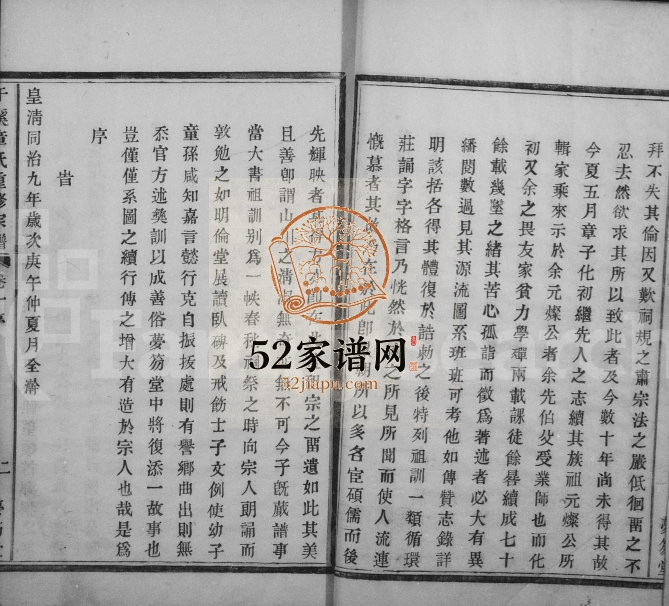 拜不失其倫因又歎祠規之肅宗法之嚴低徊畱之不
忍去然欲求其所以致此者及今數十年尚未得其故
今夏五月章子化初繼先人之志續其族祖元燦公所
輯家乘來示於余元燦公者余先伯父受業師也而化
初又余之畏友家貧力學硯兩載課徒餘晷續成七十
餘載幾墜之緒其苦心孤詣而徵為著述者必大有異
繙閱數過見其源流圖系班班可考他如傳贊志錄詳
明該括各得其體復於誥勅之後特列祖訓一類循環
莊誦字字格言乃恍然於 之所見所聞而使人流連
慨慕者其故 在於此即 所以多名宦碩儒而後
先輝映者其 宗之畱遺如此其美
且善即謂山川之清 無不可今子既蕆譜事
當大書祖訓別為一帙春秋祭之時向宗人朗誦而
敦勉之如明倫堂展讀臥碑及戒飭士子文例使幼子
童孫咸知嘉言懿行克自振拔處則有譽鄉曲出則無
忝官方述奬訓以成善俗夢笏堂中將復添一故事也
豈僅僅系圖之續行傳之增大有造於宗人也哉是為
序
旹
皇清同治九年歲次庚午仲夏月全
溪章氏重修宗譜 卷一 序 二
52家谱网
52jiapu.com